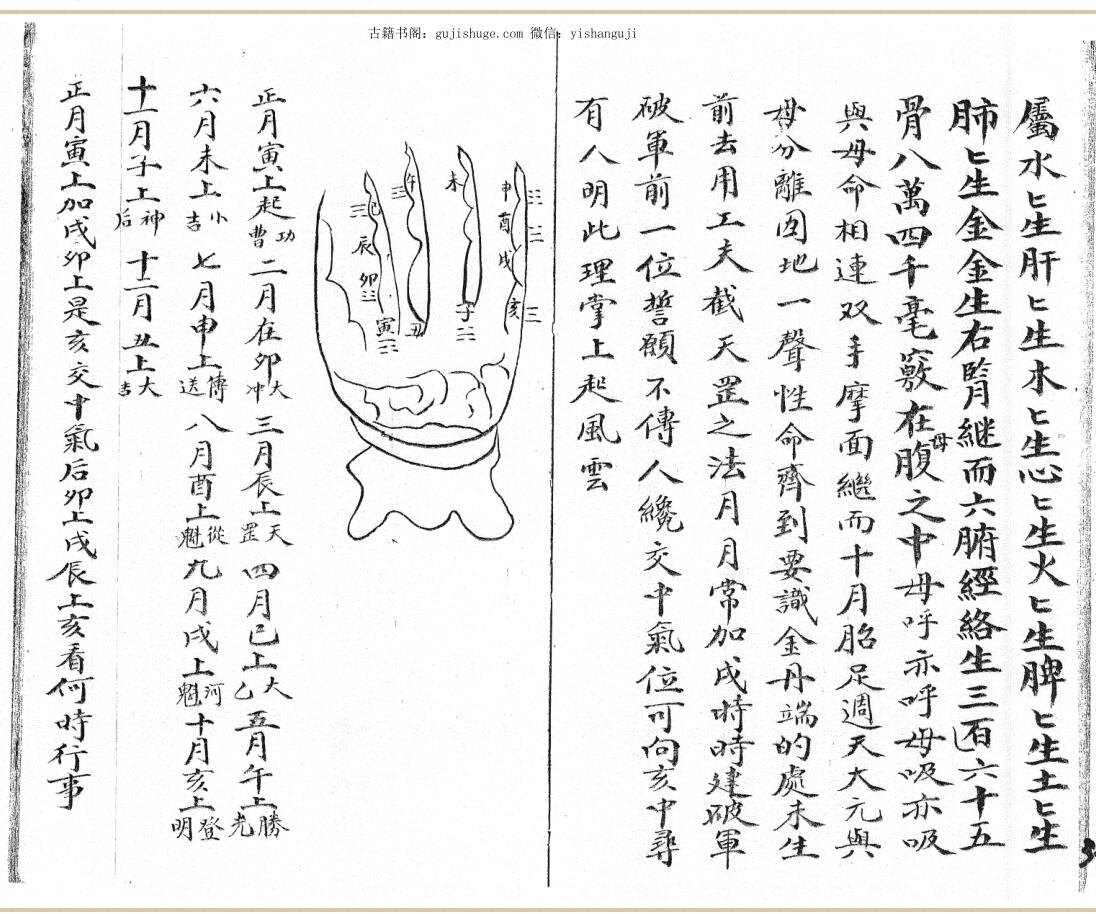 古籍书阁：gujishuge.com 微信：yishanguji
屬水匕生肝匕生木匕生心匕生火匕生脾匕生土匕生
肺匕生金金生右腎継而六腑經絡生三百六十五
骨八萬四千毫竅在母腹之中母呼亦呼母吸亦吸
與母命相連双手摩面繼而十月胎足週天大元與
母分離囡地一聲性命齊到要識金丹端的處未生
前去用工夫截天罡之法月月常加戍時時建破軍
破軍前一位誓願不傳人纔交中氣位可向亥中尋
有人明此理掌上起風雲
申 三
酉 三
戍
亥 三
未
子 三
午 三
丑
巳 三
辰
卯 三
寅 三
正月寅上起功曹二月在卯大冲三月辰上天罡四月巳上大乙五月午上勝光
六月未上小吉七月申上傳送八月酉上從魁九月戍上河魁十月亥上登明
十一月子上神后十二月丑上大吉
正月寅上加戍卯上是亥交中氣后卯上戍辰上亥看何時行事